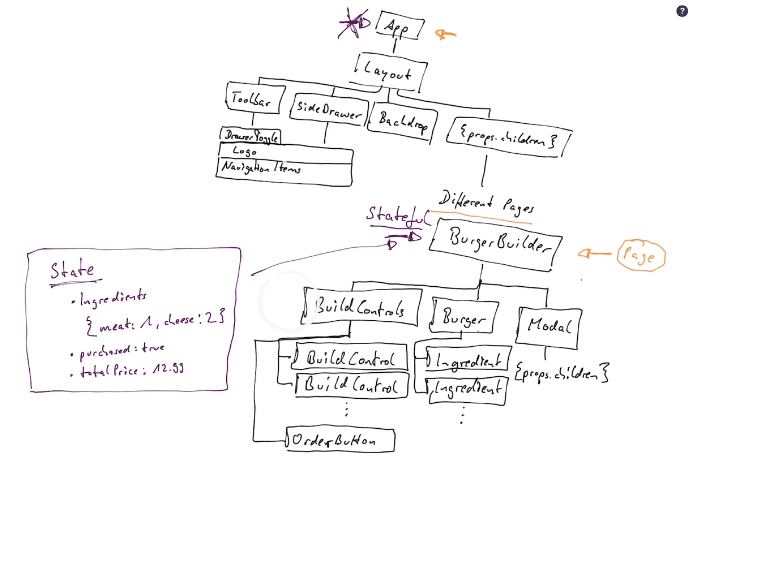 ?
App
Layout
Toolbar
SideDrawer
Backdrop
{props.children}
DrawerToggle
Logo
Navigation Items
Different Pages
Stateful
BurgerBuilder
Page
State
• Ingredients
{meat: 1, cheese: 2}
• purchased: true
• totalPrice: 12.99
BuildControls
Burger
Modal
BuildControl
BuildControl
⋮
Ingredient
Ingredient
⋮
{props.children}
OrderButton